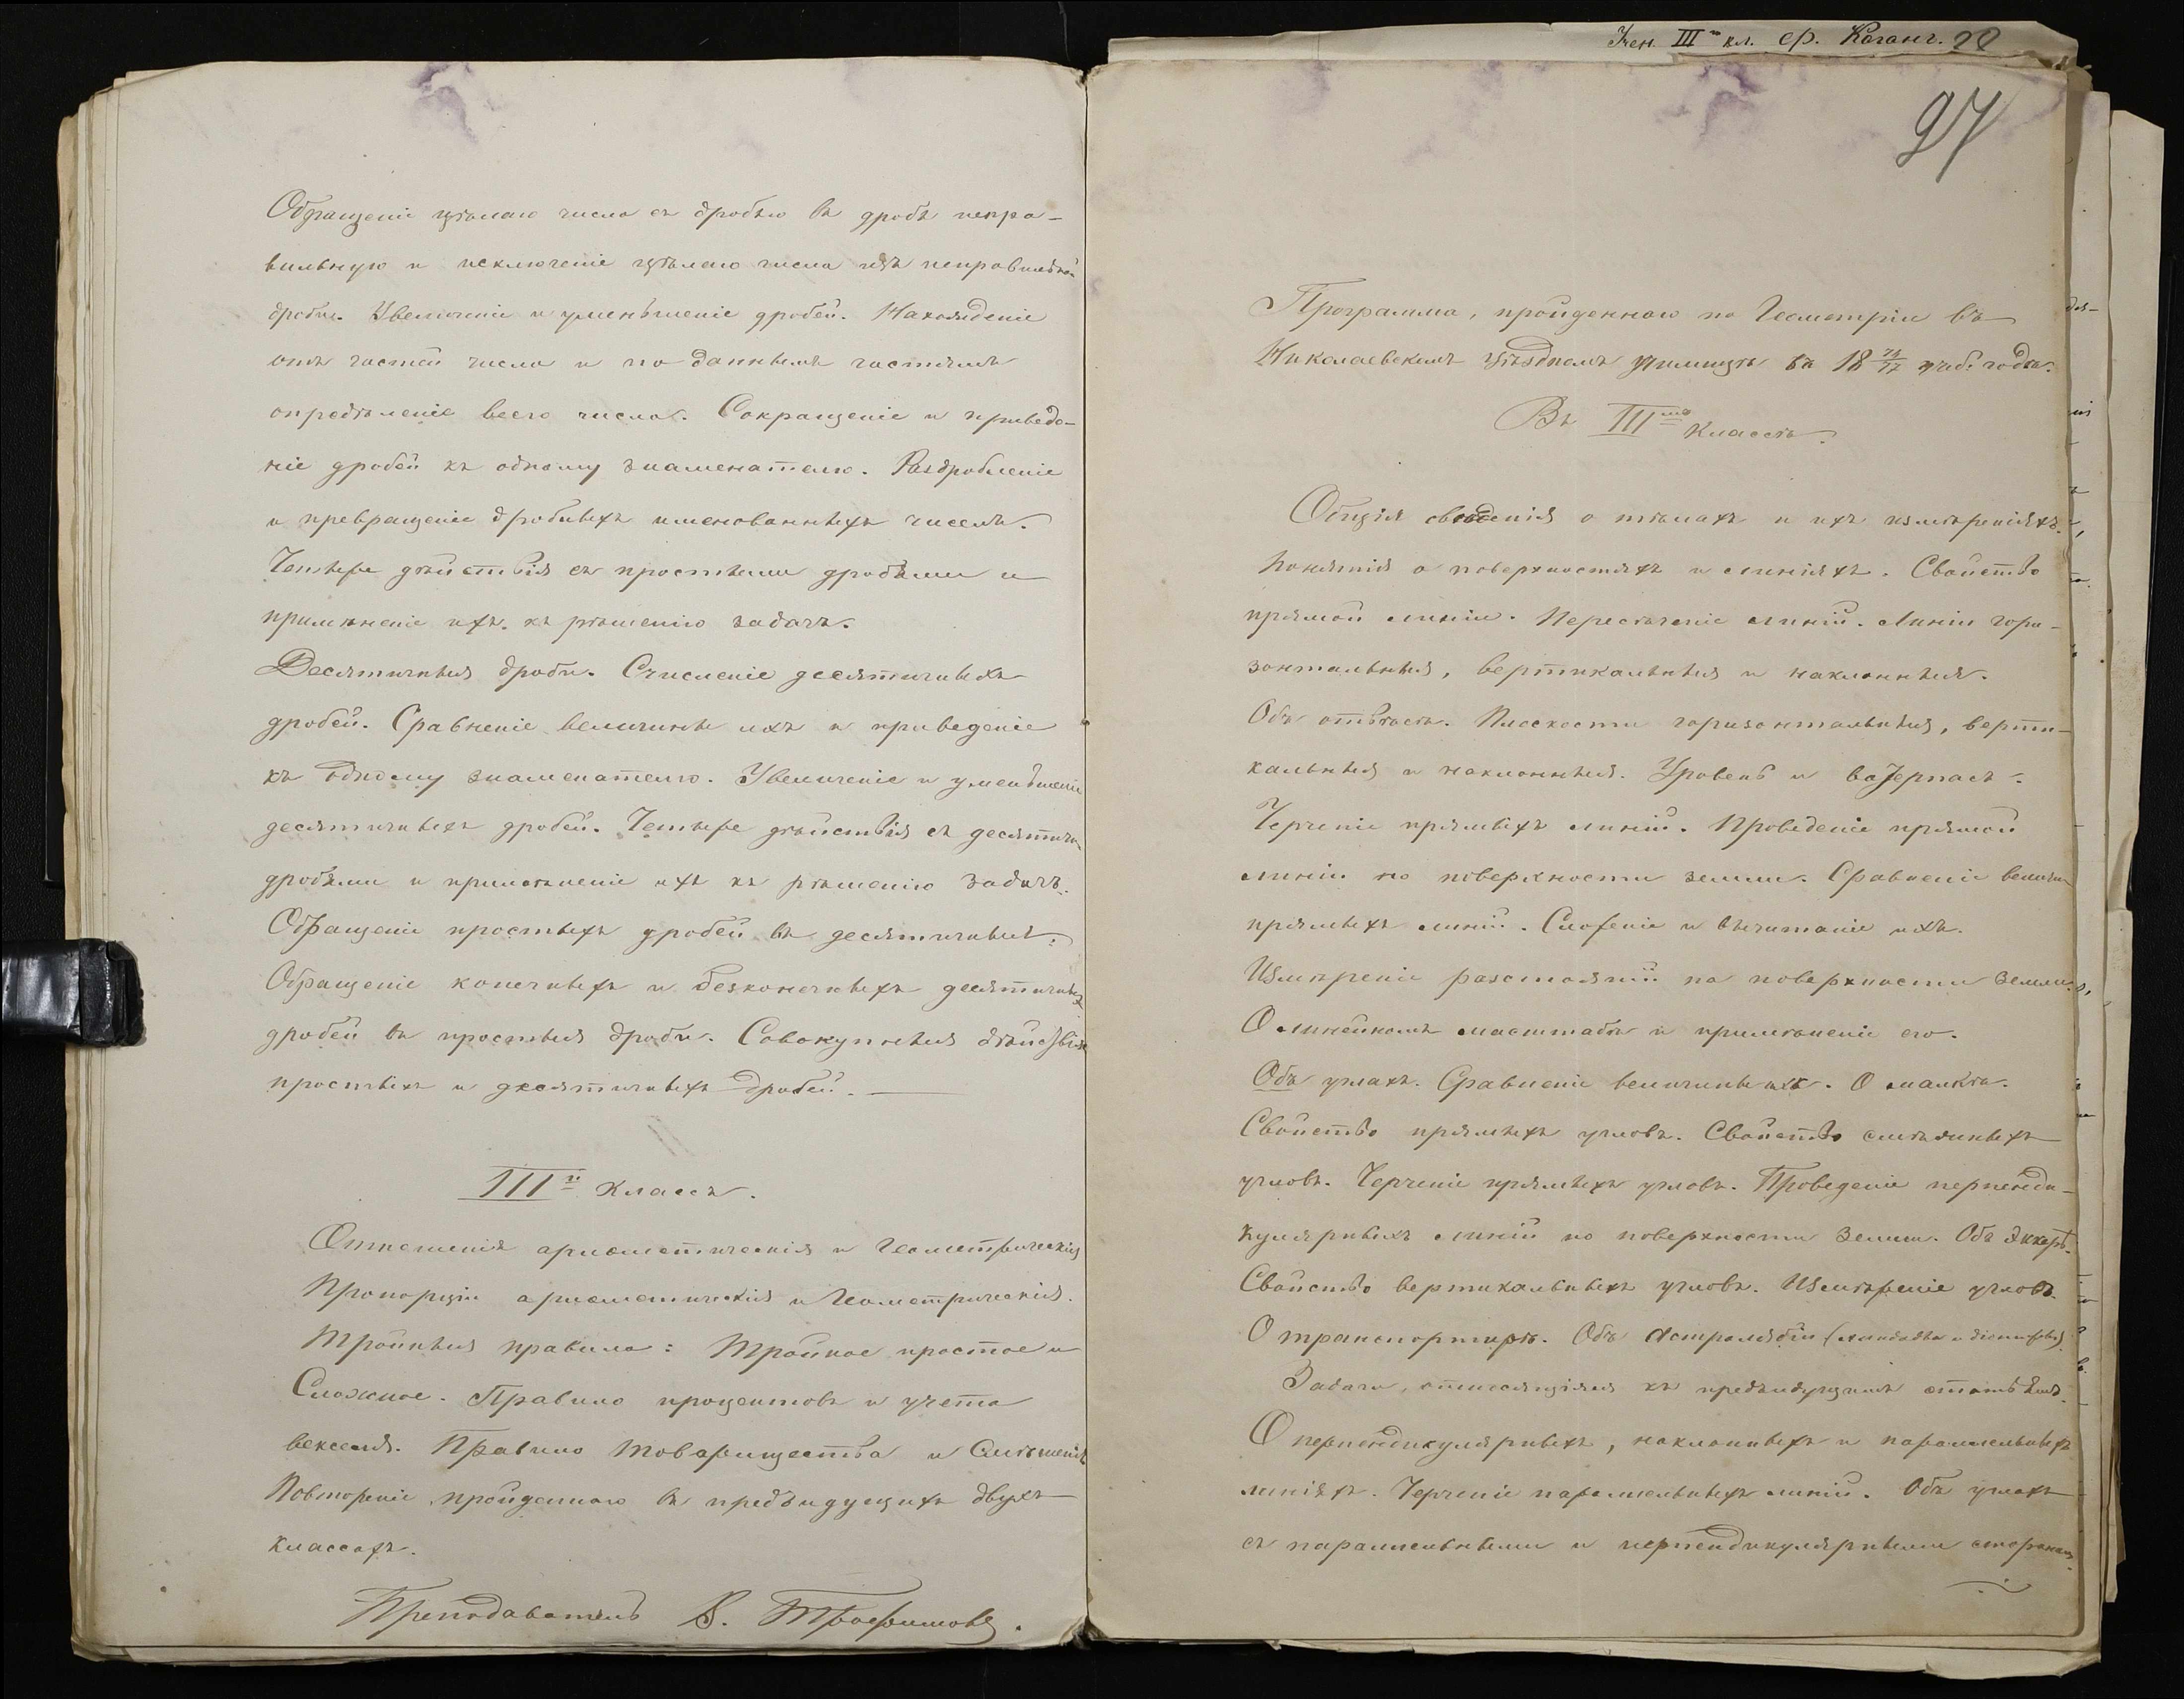 Обращеніе цѣлаго числа съ дробью въ дробь непра-
вильную и исключеніе цѣлаго числа изъ неправильной
дроби. Увеличеніе и уменьшеніе дробей. Нахожденіе
частей числа и по даннымъ частямъ
опредѣленіе всего числа. Сокращеніе и приведе-
ніе дробей къ одному знаменателю. Раздробленіе
и превращеніе дробныхъ именованныхъ чиселъ.
Четыре дѣйствія съ простыми дробями и
примѣненіе ихъ къ рѣшенію задачъ.
Десятичныя дроби. Счисленіе десятичныхъ
дробей. Сравненіе величины ихъ и приведеніе
къ одному знаменателю. Увеличеніе и уменьшеніе
десятичныхъ дробей. Четыре дѣйствія съ десятичн.
дробями и примѣненіе ихъ къ рѣшенію задачъ.
Обращеніе простыхъ дробей въ десятичныя.
Обращеніе конечныхъ и безконечныхъ десятичныхъ
дробей въ простыя дроби. Совокупныя дѣйствія
простыхъ и десятичныхъ дробей.
III й классъ.
Отношенія ариѳметическія и Геометрическія
Пропорціи ариѳметическія и Геометрическія.
Тройныя правила: Тройное простое и
Сложное. Правило процентовъ и учета
векселя. Правило товарищества и Смѣшенія
Повтореніе пройденнаго въ предъидущихъ двухъ
классахъ.
Преподаватель В. Трофимовъ.
Учен. III го кл. ср. Каганъ. 28
97
Программа, пройденнаго по Геометріи въ
Николаевскомъ уѣздномъ училищѣ въ 18 76/77 учеб. годѣ.
Въ III мъ классѣ.
Общія свѣденія о тѣлахъ и ихъ измѣреніяхъ.
Понятія о поверхностяхъ и линіяхъ. Свойство
прямой линіи. Пересѣченіе линій. Линіи гори-
зонтальныя, вертикальныя и наклонныя.
Объ отвѣсѣ. Плоскости горизонтальныя, верти-
кальныя и наклонныя. Уровень и ватерпасъ.
Черченіе прямыхъ линій. Проведеніе прямой
линіи по поверхности земли. Сравненіе величин
прямыхъ линій. Сложеніе и вычитаніе ихъ.
Измѣреніе разстояній на поверхности земли.
О линейномъ масштабѣ и примѣненіи его.
Объ углахъ. Сравненіе величины ихъ. О малкѣ.
Свойство прямыхъ угловъ. Свойство смѣжныхъ
угловъ. Черченіе прямыхъ угловъ. Проведеніе перпенди-
кулярныхъ линій по поверхности земли. Объ эккерѣ.
Свойство вертикальныхъ угловъ. Измѣреніе угловъ.
О транспортирѣ. Объ Астролябіи
Задачи, относящіяся къ предъидущимъ статьямъ.
О перпендикулярныхъ, наклонныхъ и параллельныхъ
линіяхъ. Черченіе параллельныхъ линій. Объ углахъ
съ параллельными и перпендикулярными сторонам.